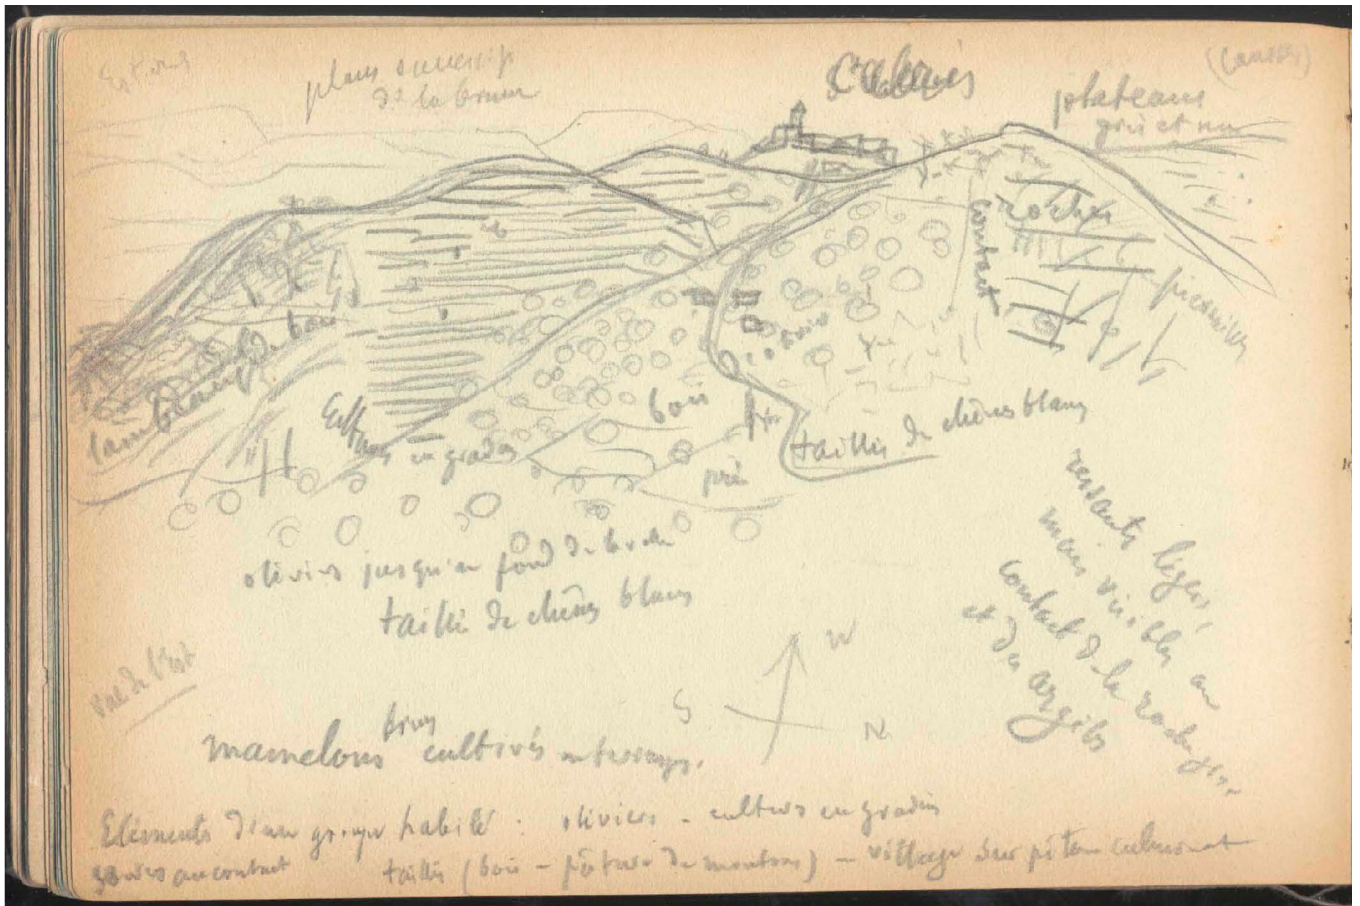 Estérel
plans successifs
de la brume
Cabris
(Causses)
plateaux
gris et nus
rochers
contact
pierrailles
lambeaux de bois
Cultures en gradins
bois
pré
taillis de chênes blancs
oliviers jusqu'au fond de la
taillis de chênes blancs
ressauts légers,
mais visibles au
contact de la
et des argiles
vue de l'Est
W
S
N
bruns
mamelons cultivés en terrasses.
Eléments d'un groupe habité : oliviers - cultures en gradins
sources au contact taillis (bois - pâture de moutons) - village sur piton culminant